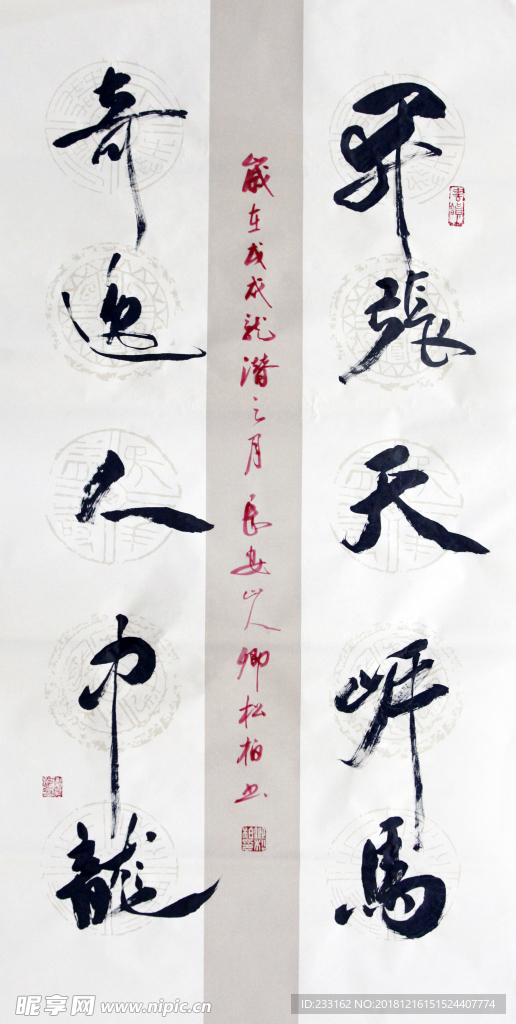 开張天岸馬
歲在戊戌龍潛之月長安山人卿松柏书
奇逸人中龍
昵享网 www.nipic.cn
ID:233162 NO:20181216151524407774